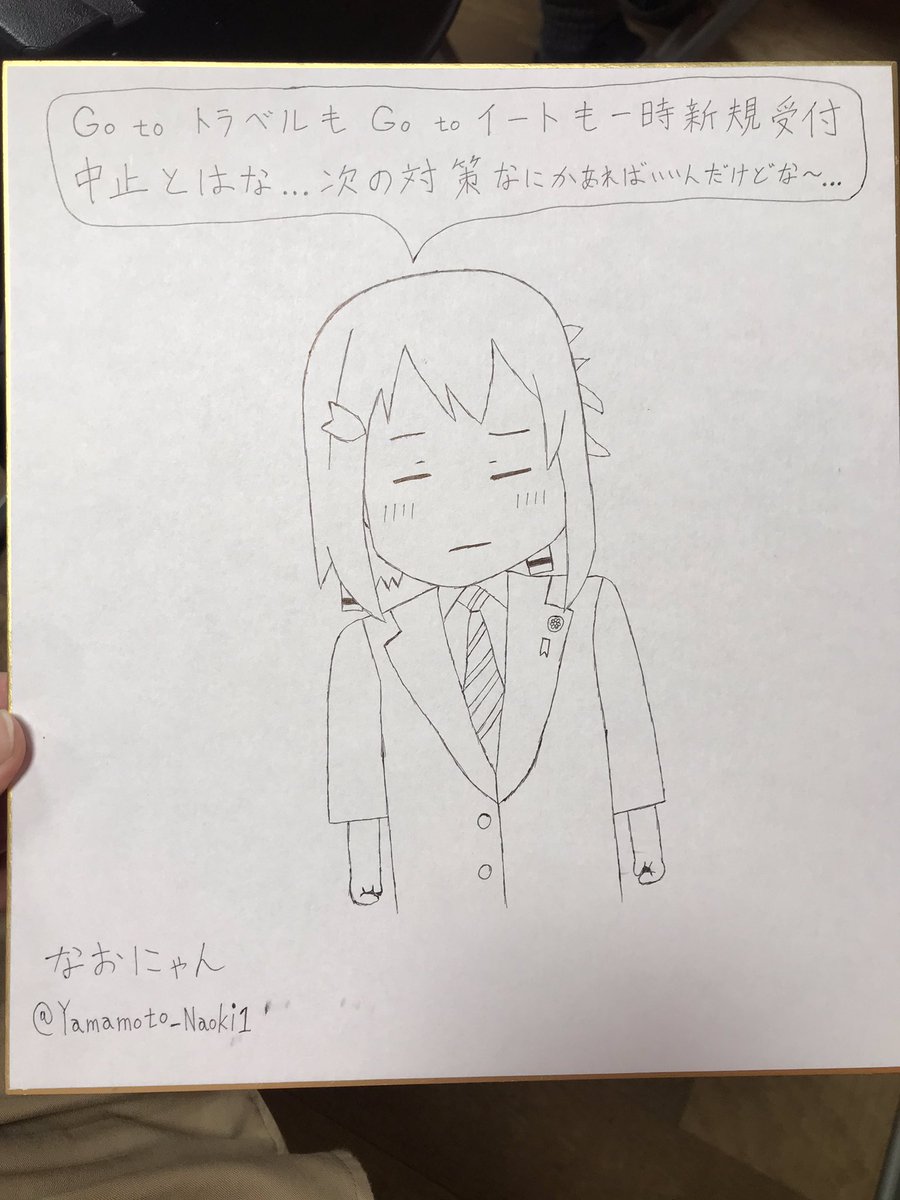 Go to トラベルも Go to イートも一時新規受付
中止とはな...次の対策なにかあればいいんだけどな～...
なおにゃん
@Yamamoto_Naoki1